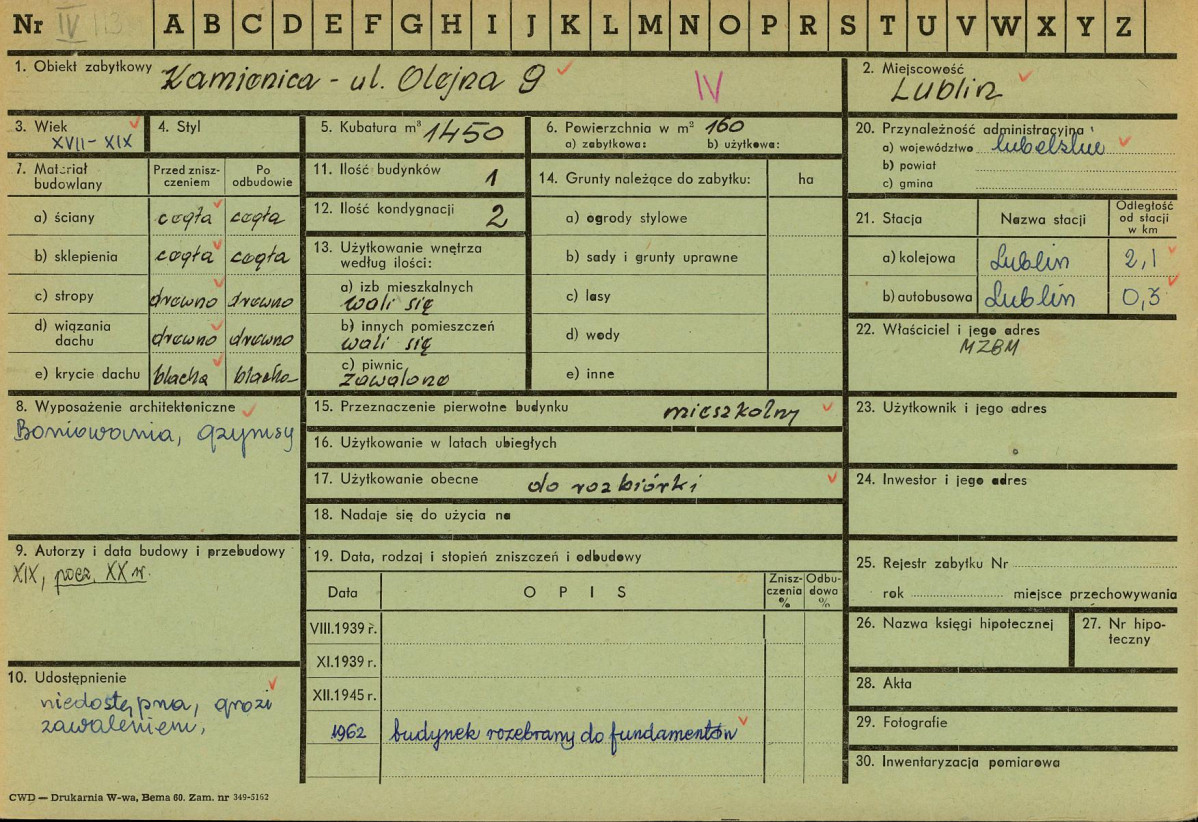 Nr IV A B C D E F G H I J K L M N O P R S T U V W X Y Z
1. Obiekt zabytkowy Kamienica - ul. Olejna 9 IV
2. Miejscowość Lublin
3. Wiek XVII-XIX
4. Styl
5. Kubatura m³ 1450
6. Powierzchnia w m² 160
a) zabytkowa: b) użytkowa:
20. Przynależność administracyjna
a) województwo lubelskie
b) powiat
c) gmina
7. Materiał budowlany
Przed zniszczeniem
Po odbudowie
a) ściany cegła cegła
b) sklepienia cegła cegła
c) stropy drewno drewno
d) wiązania dachu drewno drewno
e) krycie dachu blacha blacha
11. Ilość budynków 1
12. Ilość kondygnacji 2
13. Użytkowanie wnętrza
według ilości:
a) izb mieszkalnych
wali się
b) innych pomieszczeń
wali się
c) piwnic
zawalone
14. Grunty należące do zabytku: ha
a) ogrody stylowe
b) sady i grunty uprawne
c) lasy
d) wody
e) inne
21. Stacja Nazwa stacji Odległość od stacji w km
a) kolejowa Lublin 2,1
b) autobusowa Lublin 0,3
22. Właściciel i jego adres
MZBM
8. Wyposażenie architektoniczne
Boniowania, gzymsy
15. Przeznaczenie pierwotne budynku mieszkalny
16. Użytkowanie w latach ubiegłych
17. Użytkowanie obecne do rozbiórki
18. Nadaje się do użycia na
23. Użytkownik i jego adres
24. Inwestor i jego adres
9. Autorzy i data budowy i przebudowy
XIX, pocz. XX w.
19. Data, rodzaj i stopień zniszczeń i odbudowy
Data OPIS Zniszczenia % Odbudowa %
VIII.1939 r.
XI.1939 r.
XII.1945 r.
1962 budynek rozebrany do fundamentów
25. Rejestr zabytku Nr
rok miejsce przechowywania
26. Nazwa księgi hipotecznej
27. Nr hipoteczny
28. Akta
29. Fotografie
30. Inwentaryzacja pomiarowa
10. Udostępnienie
niedostępna, grozi
zawaleniem,
CWD — Drukarnia W-wa, Bema 60. Zam. nr 349-5162